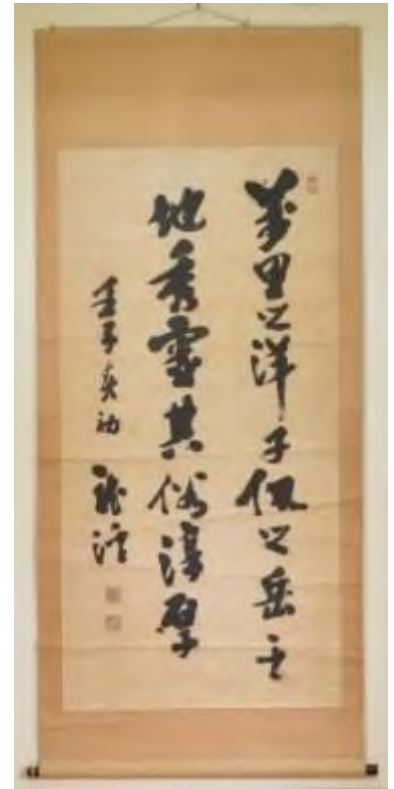 萬里之洋千仭之岳其
地秀靈其俗淳厚
壬子春初